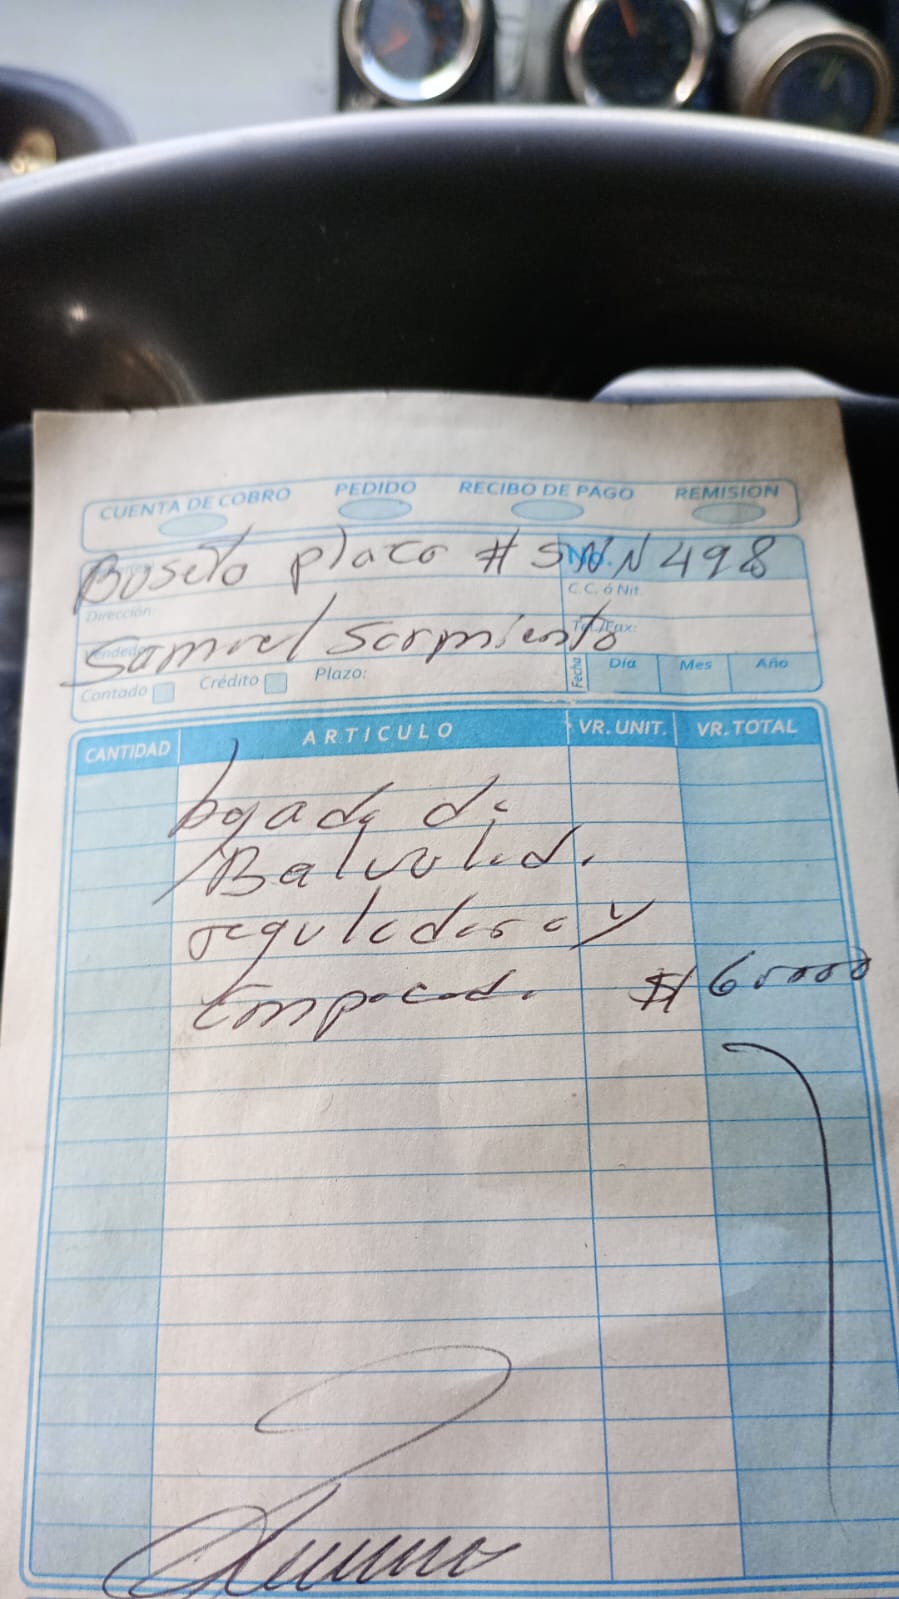 CUENTA DE COBRO PEDIDO RECIBO DE PAGO REMISION
Buseto placo # SNN 498
No.
C.C. ó Nit.
Dirección:
Tel./Fax:
Samuel Sarmiento
Vendedor
Contado Crédito Plazo: Fecha Día Mes Año
CANTIDAD ARTICULO VR. UNIT. VR. TOTAL
bajada de
Balvula.
reguladora y
empacad. $